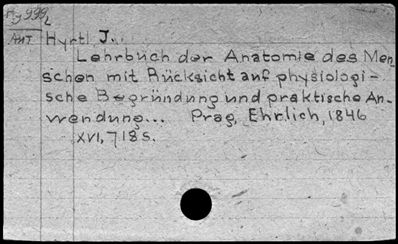 Hy 999
ANT Hyrtl, J..
Lehrbuch der Anatomie des Men-
schen mit Rücksicht auf physiologi-
sche Begründung und praktische An-
wendung... Prag, Ehrlich, 1846
XVI, 718 s.